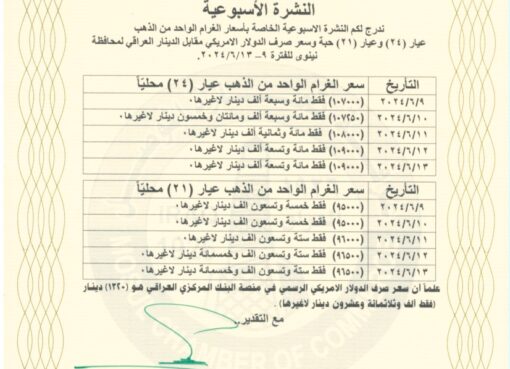 النشرة الأسبوعية
ندرج لكم النشرة الاسبوعية الخاصة بأسعار الغرام الواحد من الذهب
عيار (٢٤) وعيار (٢١) حبة وسعر صرف الدولار الامريكي مقابل الدينار العراقي لمحافظة
نينوى للفترة ٩- ٢٠٢٤/٦/١٣.
التأريخ سعر الغرام الواحد من الذهب عيار (٢٤) محليّاً
٢٠٢٤/٦/٩ (١٠٧٠٠٠) فقط مائة وسبعة الف دينار لاغيرها.
٢٠٢٤/٦/١٠ (١٠٧٢٥٠) فقط مائة وسبعة ألف ومائتان وخمسون دينار لاغيرها.
٢٠٢٤/٦/١١ (١٠٨٠٠٠) فقط مائة وثمانية ألف دينار لاغيرها.
٢٠٢٤/٦/١٢ (١٠٩٠٠٠) فقط مائة وتسعة ألف دينار لاغيرها.
٢٠٢٤/٦/١٣ (١٠٩٠٠٠) فقط مائة وتسعة ألف دينار لاغيرها.
التأريخ سعر الغرام الواحد من الذهب عيار (٢١) محليّاً
٢٠٢٤/٦/٩ (٩٥٠٠٠) فقط خمسة وتسعون الف دينار لاغيرها.
٢٠٢٤/٦/١٠ (٩٥٠٠٠) فقط خمسة وتسعون الف دينار لاغيرها.
٢٠٢٤/٦/١١ (٩٦٠٠٠) فقط ستة وتسعون الف دينار لاغيرها.
٢٠٢٤/٦/١٢ (٩٦٥٠٠) فقط ستة وتسعون الف وخمسمائة دينار لاغيرها.
٢٠٢٤/٦/١٣ (٩٦٥٠٠) فقط ستة وتسعون الف وخمسمائة دينار لاغيرها.
علماً أن سعر صرف الدولار الامريكي الرسمي في منصة البنك المركزي العراقي هو (١٣٢٠) دينار
(فقط ألف وثلاثمائة وعشرون دينار لاغيرها).
مع التقدير..
CHAMBER OF